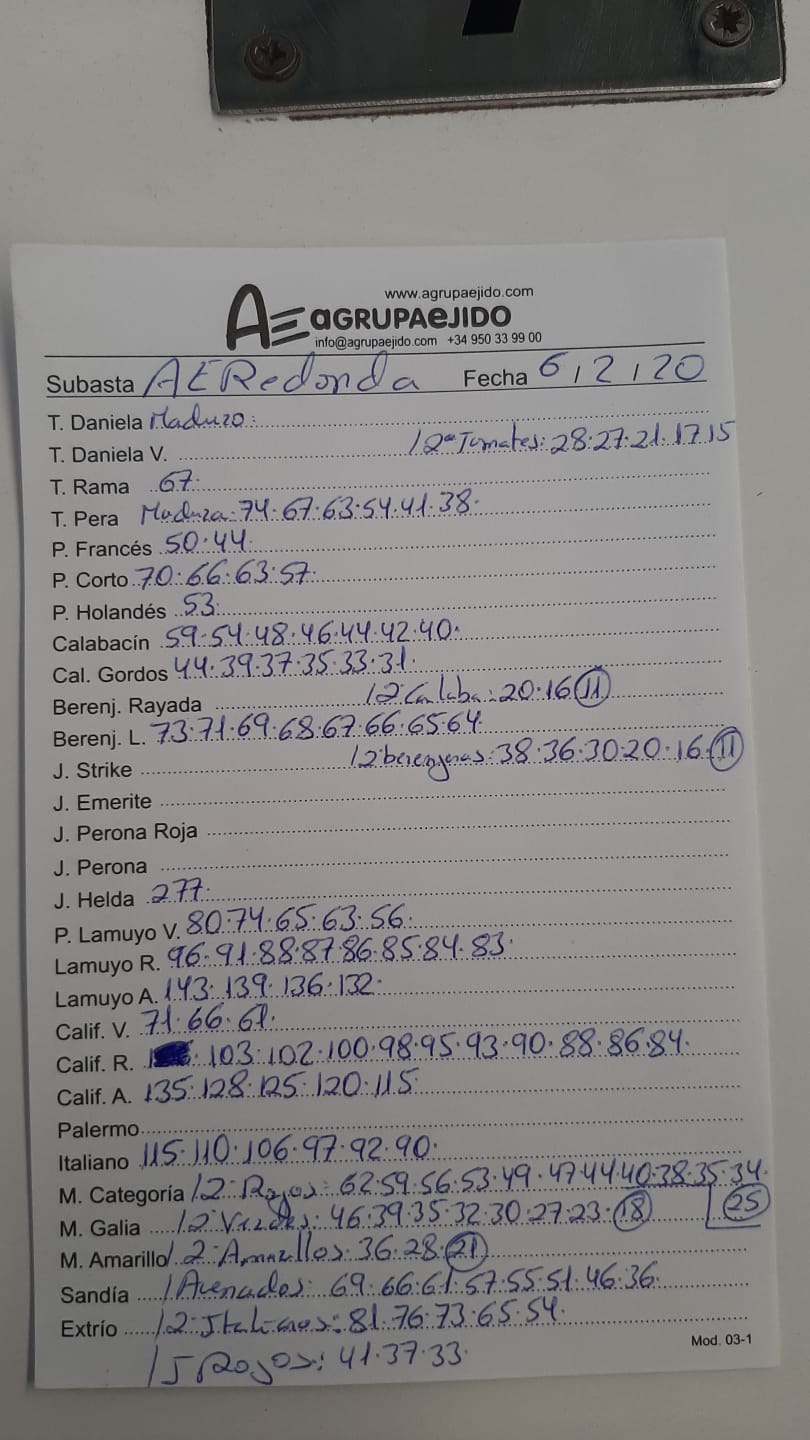 www.agrupaejido.com
AE aGRUPAeJIDO
info@agrupaejido.com +34 950 33 99 00
Subasta AERedonda Fecha 6/2/20
T. Daniela Maduro:
T. Daniela V. /2ª Tomates: 28·27·21·17·15
T. Rama 67·
T. Pera Maduza: 74·67·63·54·41·38·
P. Francés 50·44·
P. Corto 70·66·63·57·
P. Holandés 53·
Calabacín 59·54·48·46·44·42·40·
Cal. Gordos 44·39·37·35·33·31·
Berenj. Rayada /2ª Calaba: 20·16 11
Berenj. L. 73·71·69·68·67·66·65·64·
J. Strike /2ª berenjenas: 38·36·30·20·16· 11
J. Emerite
J. Perona Roja
J. Perona
J. Helda 277·
P. Lamuyo V. 80·74·65·63·56·
Lamuyo R. 96·91·88·87·86·85·84·83·
Lamuyo A. 143·139·136·132·
Calif. V. 71·66·61·
Calif. R. 103·102·100·98·95·93·90·88·86·84·
Calif. A. 135·128·125·120·115·
Palermo
Italiano 115·110·106·97·92·90·
M. Categoría /2ª Rojos: 62·59·56·53·49·47·44·40·38·35·34·
M. Galia /2ª Verdes: 46·39·35·32·30·27·23· 18 25
M. Amarillo /2ª Amarillos: 36·28· 21
Sandía /Asenados: 69·66·61·57·55·51·46·36·
Extrío /2ª Italianos: 81·76·73·65·54·
/J Rojos: 41·37·33·
Mod. 03-1